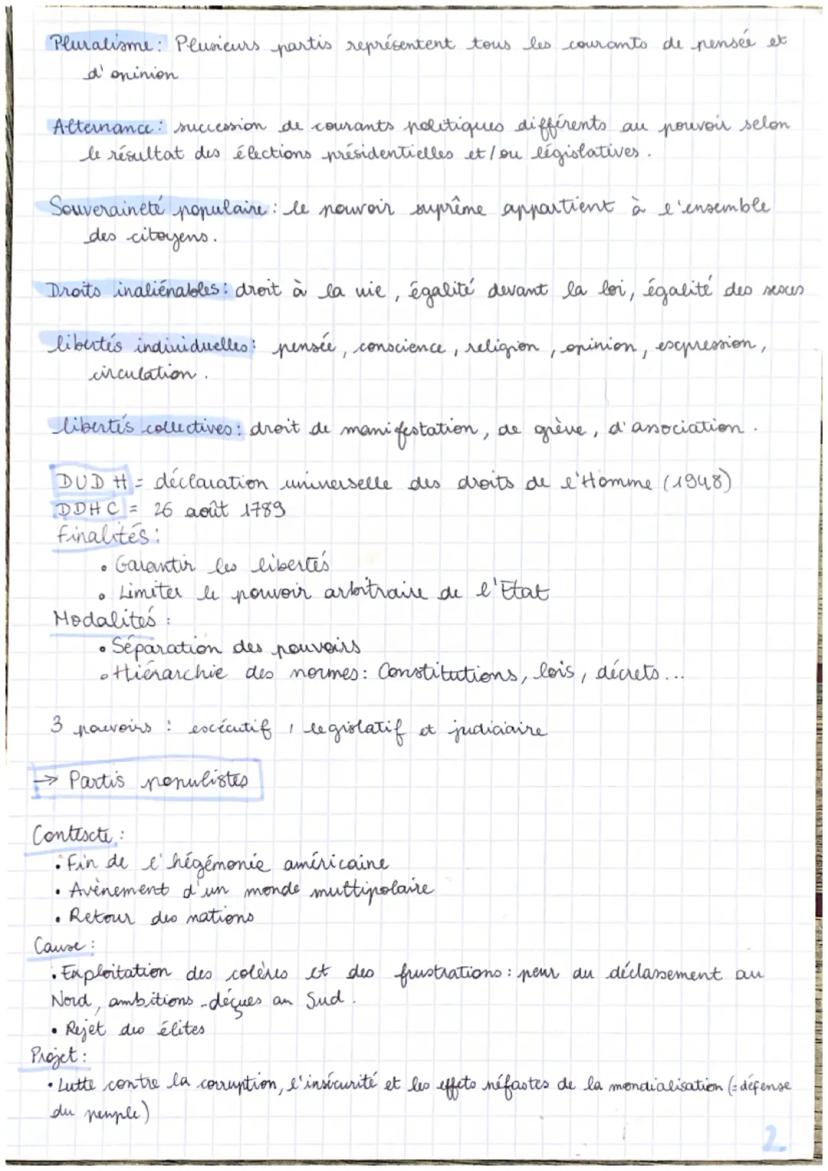 Pluralisme : Plusieurs partis représentent tous les courants de pensée et
d'opinion
Alternance : succession de courants politiques différents au pouvoir selon
le résultat des élections présidentielles et/ou législatives.
Souveraineté populaire : le pouvoir suprême appartient à l'ensemble
des citoyens.
Droits inaliénables : droit à la vie, égalité devant la loi, égalité des sexes
libertés individuelles : pensée, conscience, religion, opinion, expression,
circulation.
libertés collectives : droit de manifestation, de grève, d'association.
DUDH = déclaration universelle des droits de l'Homme (1948)
DDHC = 26 août 1789
Finalités :
• Garantir les libertés
• Limiter le pouvoir arbitraire de l'Etat
Modalités :
• Séparation des pouvoirs
• Hiérarchie des normes : Constitutions, lois, décrets...
3 pouvoirs : exécutif, législatif et judiciaire
→ Partis populistes
Contexte :
• Fin de l'hégémonie américaine
• Avènement d'un monde multipolaire
• Retour des nations
Cause :
• Exploitation des colères et des frustrations : peur du déclassement au
Nord, ambitions déçues au Sud.
• Rejet des élites
Projet :
• Lutte contre la corruption, l'insécurité et les effets néfastes de la mondialisation (= défense
du peuple)
2